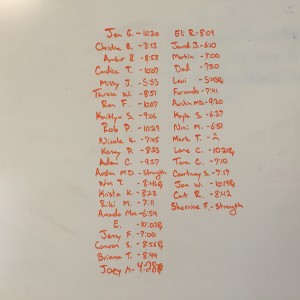 Jen G. - 10:20
Christine B. - 8:13
Amber B. - 8:58
Candice T. - 10:07
Missy J. - 5:53
Theresa W. - 8:51
Ron F. - 10:07
Kaitlyn S. - 9:06
Rob P. - 10:29
Nicole K. - 7:45
Kasey P. - 8:23
Adam C. - 9:57
Austin MD - Strength
Wes T. - 8:4
Krista K. - 8:28
Rikki M. - 7:11
Amanda Mac - 6:54
E. - 10:02
Jerry F. - 7:00
Cameron S. - 8:58
Briana T. - 8:44
Joey M - 4:28
Eli R. - 8:09
Jared J. - 6:10
Martin - 8:00
Dad - 7:30
Levi - 5:
Fernando - 7:41
Austin MD - 9:20
Kayla S. - 6:37
Nini M. - 6:51
Mark T. -
Lane C. - 10:21
Tara C. - 7:10
Courtney S. - 7:17
Jon W. - 10:19
Cat R. - 8:42
Sherriee F. - Strength